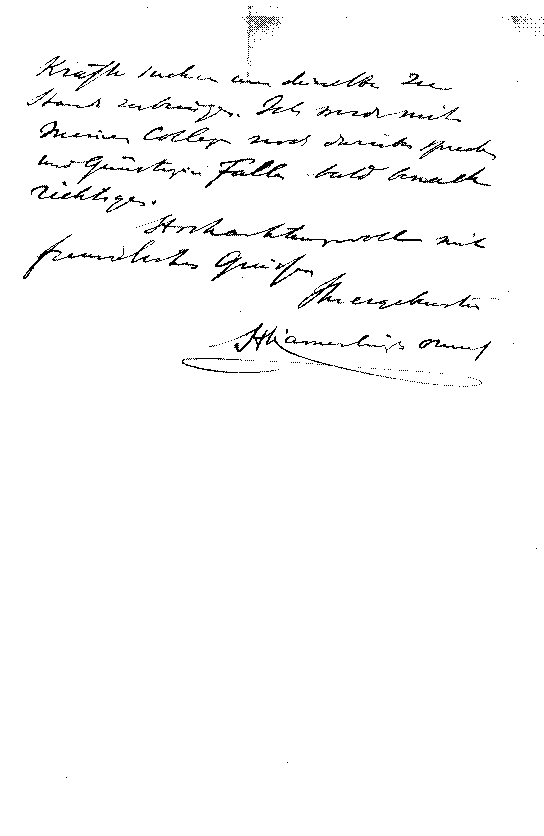 Kräfte suchen um dieselbe zu
Stand zu bringen. Ich werde mit
meinen Collegen noch darüber sprechen
und günstigen Falle bald benach
richtigen.
Hochachtungsvoll mit
freundlichen Grüssen
Ihr ergebenster
H Kamerlingh Onnes